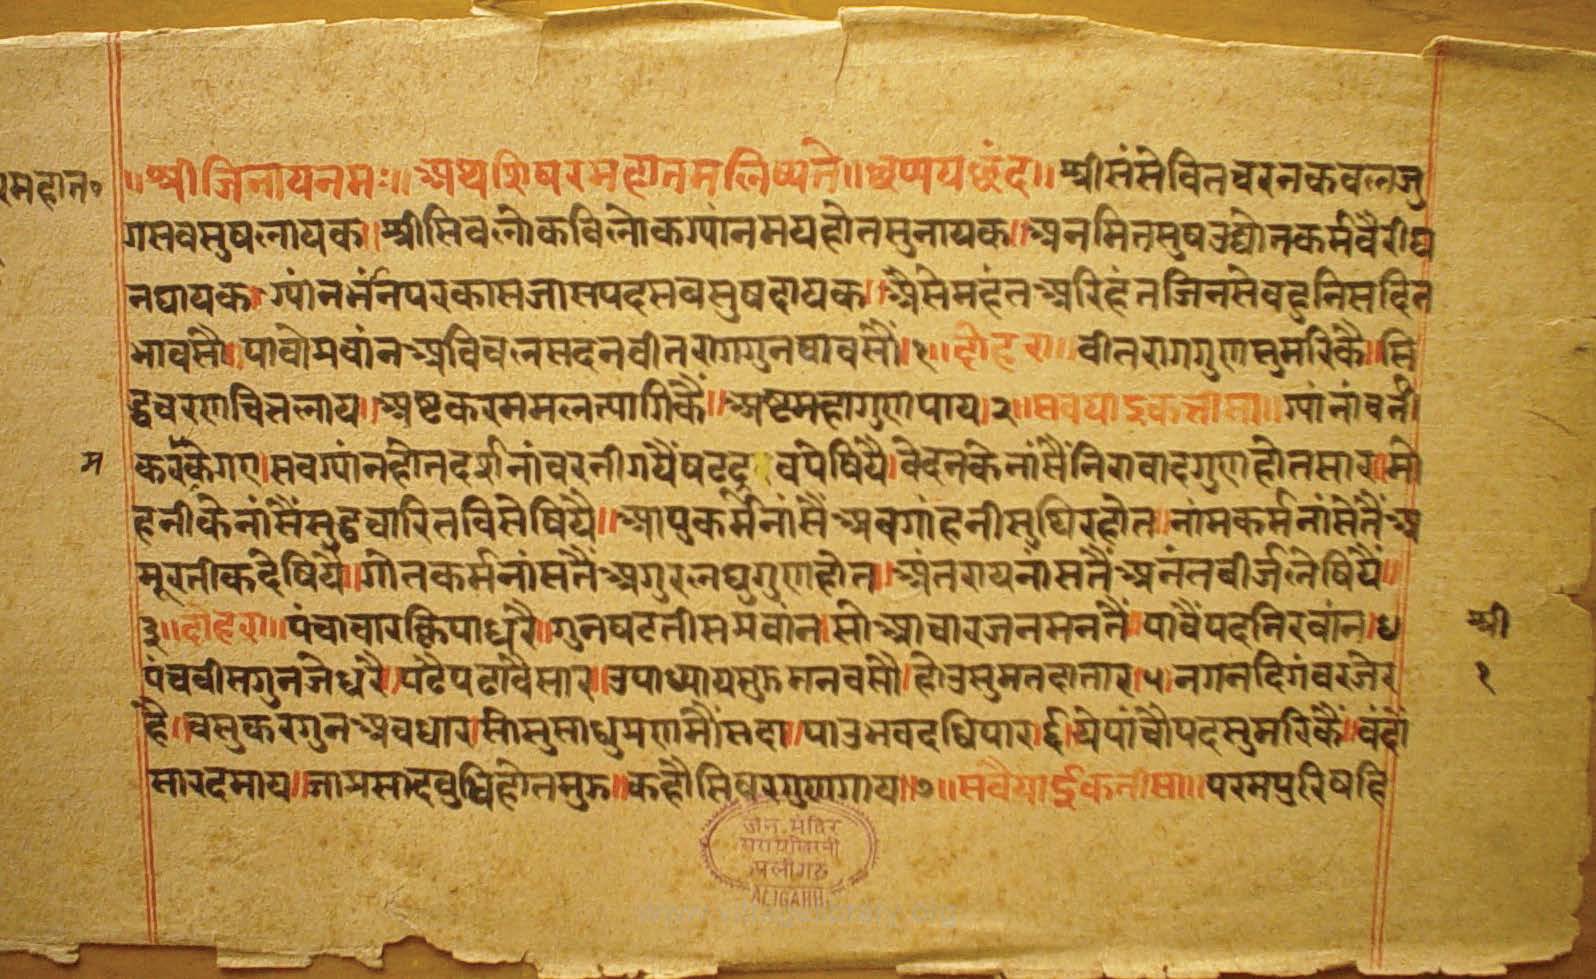 रमहात॰
॥श्रीजिनायनमः॥अथशिषरमहातमलिष्यते॥छप्पयछंद॥श्रीसंसेवितचरनकवलजु
गसवसुषलायक॥श्रीसिवलोकविलोकग्यांनमयहोतसुनायक॥अनमितसुषउद्योतकर्मवैरीघ
नघायक।ग्यांनभंनिपरकासजासपदसवसुषदायक।अैसेमहंतअरिहंतजिनसेवहुनिसदित
भावसौ।पावोमवांनअविचलसदनवीतरागगुनचावसौं।१॥दोहरा॥वीतरागगुणसुमरिकै।सि
द्धचरणचितलाय।अष्टकरममलत्यागिकैं॥अष्टमहागुणपाय।२॥सवयाइकत्तीसा॥ग्यांनांवर्नी
म
करकेगए।सवग्यांनहोतदर्शनांवरनीगयैंषटद्रवपेषियै।वेदनकेनांसैंनिरावादगुणहोतसार।मो
हनीकेनांसैंसुद्धचारितविसेषियै॥आपुकर्मनांसैंअवगांहनीसुथिरहोत।नांमकर्मनांसेतैंअ
मूरतीकदेषियै।गोतकर्मनांसतैंअगुरलघुगुणहोत।अंतरायनांसतैंअनंतवीर्जलेषियैं॥
३॥दोहरा॥पंचाचारक्रिपाधरै।गुनषटतीसमवांन।सोआचारजनमनतैं।पावैंपदनिरवांन।४
पंचवीसगुनजेधरै।पढैपढावैसार।उपाध्यायसुऊमनवसौ।होउसुमतदातार।५।नगनदिगंवरजेर
है।वसुकरगुनअवधार।सोसुसाधुप्रणमौंसदा।पाउभवदधिपार।६।येपांचौपदसुमरिकैं॥वंदौं
सारदमाय।जाप्रसादवुधिहोतमुऊ॥कहौसिषरगुणगाय॥७॥सवैयाईकतीसा॥परमपुरिषहि
श्री
१
जैन मंदिर
अलीगढ
ALIGARH